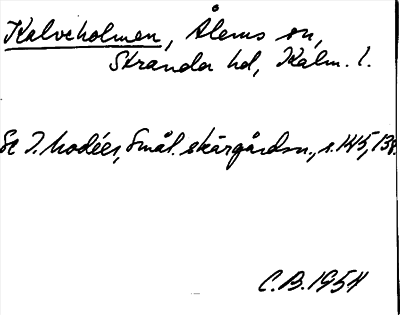 Kalveholmen, Ålems sn,
Stranda hd, Kalm. l.
Se I. Modéer, Smål. skärgårdsn., s. 145, 138.
C.B. 1954